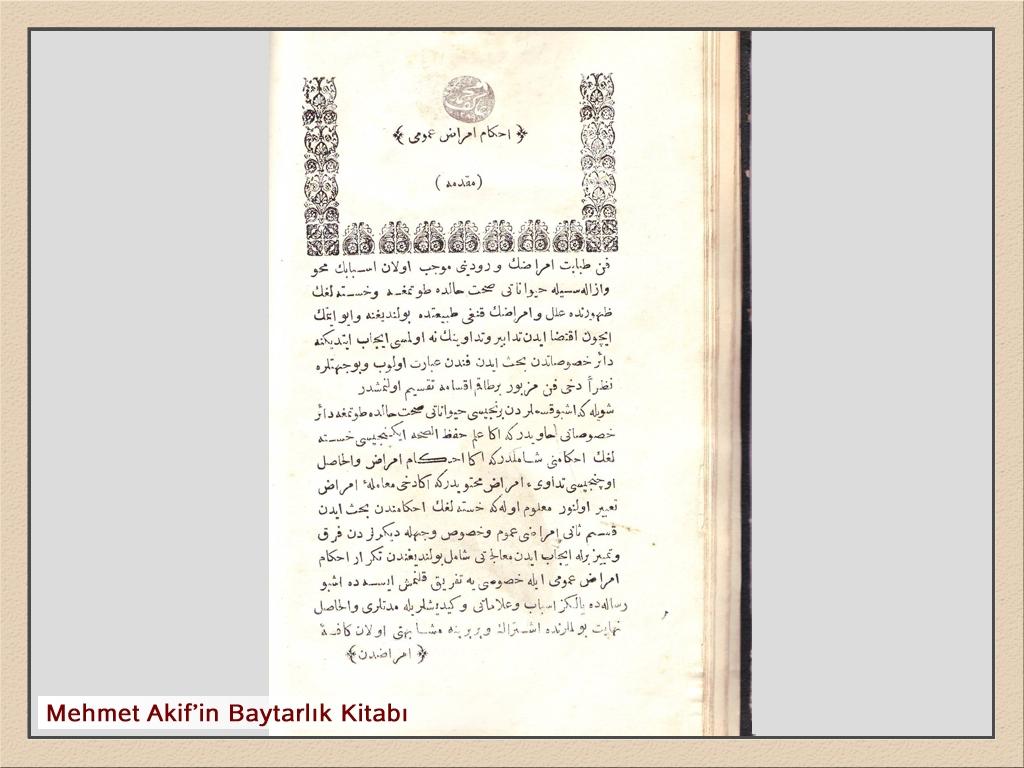 ﴿ احكام امراض عمومى ﴾
( مقدمه )
فن طبابت امراضك ورودينى موجب اولان اسبابك محو
وازاله‌سيله حيواناتى صحت حالده طوتمغه وخسته لغك
ظهورنده علل وامراضك قنغى طبيعتده بولنديغنه وايو ايتمك
ايچون اقتضا ايدن تدابير وتداوينك نه اولمسى ايجاب ايتديكنه
دائر خصوصاتدن بحث ايدن فندن عبارت اولوب وبوجهتلره
نظراً دخى فن مزبور برطاقم اقسامه تقسيم اولنمشدر
شويله كه اشبو قسملردن برنجيسى حيواناتى صحت حالده طوتمغه دائر
خصوصاتى حاويدركه اكا علم حفظ الصحه ايكنجيسى خسته
لغك احكامنى شاملدركه اكا احكام امراض والحاصل
اوچنجيسى تداوىء امراض محتويدركه اكادخى معاملهٔ امراض
تعبير اولنور معلوم اوله‌كه خسته لغك احكامندن بحث ايدن
قسم ثانى امراضى عموم وخصوص وجهله ديكرلردن فرق
وتمييز برله ايجاب ايدن معالجاتى شامل بولنديغندن تكرار احكام
امراض عمومى ايله خصوصى يه تفريق قلنمش ايسه ده اشبو
رساله‌ده يالكز اسباب وعلاماتى وكيديشلريله مدتلرى والحاصل
نهايت بولملرنده اشتراك وبربرينه مشابهتى اولان كافهٔ
﴿ امراضدن ﴾
Mehmet Akif’in Baytarlık Kitabı